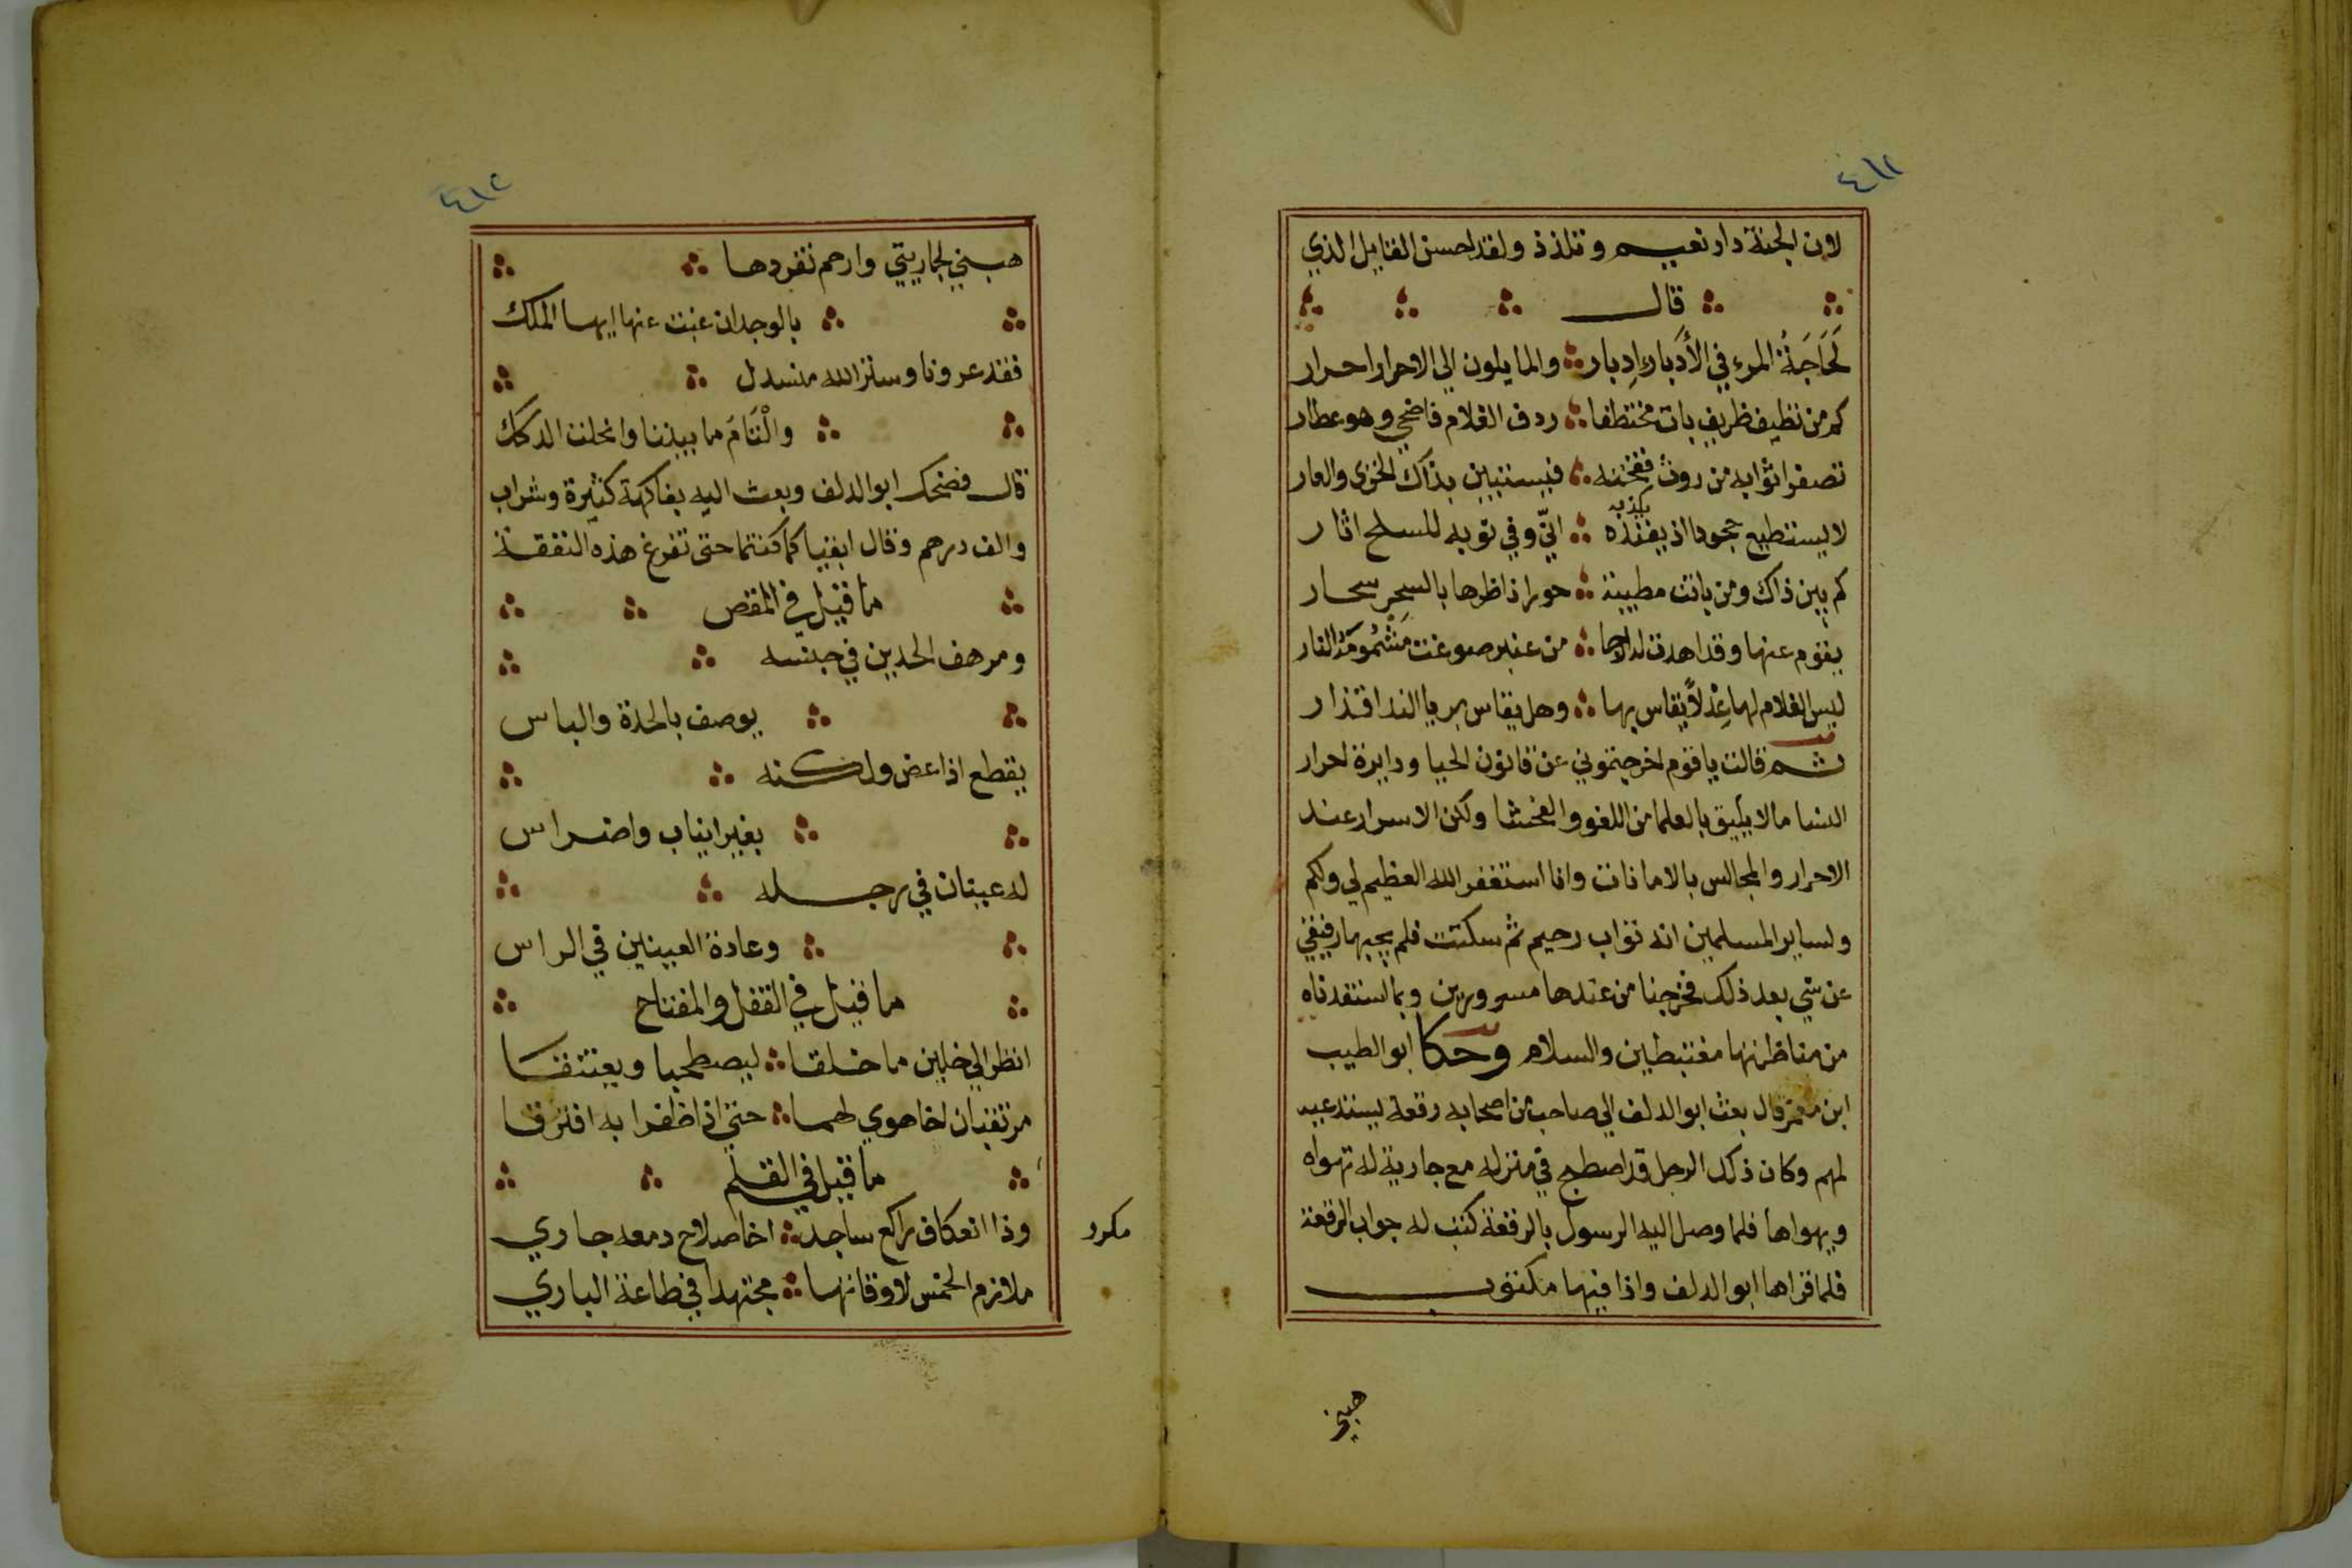 ٤١١
لان الجنة دار نعيم وتلذذ ولقد احسن القايل الذي
قال
لَحَاجَةُ المرء في الأدبار إدبار والمايلون الي الاحرار احرار
كم من نظيف ظريف بات مختطفا ردف الغلام فاضحي وهو عطار
تصفر اثوابه من روث فقحته فيستبين بذاك الخزى والعار
لا يستطيع جحودا اذ يفنده انّي وفي ثوبه للسلح اثار
يكذبه
كم بين ذاك ومن باتت مطيبة حورا ناظرها بالسحر سحار
يقوم عنها وقد اهدت له ارجا من عنبر ضوعت مشمومه النار
ليس الغلام لها عِدلاً يقاس بها وهل يقاس بريا الند اقذار
ثم قالت يا قوم اخرجتموني عن قانون الحيا ودايرة احرار
النسا ما لا يليق بالعلما من اللغو والفحشا ولكن الاسرار عند
الاحرار والمجالس بالامانات وانا استغفر الله العظيم لي ولكم
ولساير المسلمين انه تواب رحيم ثم سكتت فلم يجبها رفيقي
عن شي بعد ذلك فخرجنا من عندها مسرورين وبما استفدناه
من مناظرتها مغتبطين والسلام وحكا ابو الطيب
ابن معمر قال بعث ابو الدلف الي صاحب من اصحابه رقعة يستدعيه
لهم وكان ذكك الرجل قد اصطبح في منزله مع جارية له تهواه
ويهواها فلما وصل اليه الرسول بالرقعة كتب له جواب الرقعة
فلما قراها ابو الدلف واذا فيها مكتوب
هبني
٤١٢
هبني لجاريتي وارحم تفردها
بالوجد ان غبت عنها ايها الملك
فقد عرونا وستر الله منسدل
والْتَامَ ما بيننا وانحلت الدكك
قال فضحك ابو الدلف وبعث اليه بفاكهة كثيرة وشراب
والف درهم وقال ابقيا كما كنتما حتى تفرغ هذه النفقة
ما قيل في المقص
ومرهف الحدين في جنسه
يوصف بالحدة والباس
يقطع اذا عض ولكنه
بغير انياب واضراس
له عينان في رجله
وعادة العينين في الراس
ما قيل في القفل والمفتاح
انظر الي خلين ما خلقا ليصطحبا ويعتنقا
مرتقبان اخا هوي لهما حتي اذا ظفرا به افترقا
ما قيل في القلم
وذا انعكاف راكع ساجد اخا صلاح دمعه جاري
مكرر
ملازم الخمس لاوقاتها مجتهدا في طاعة الباري